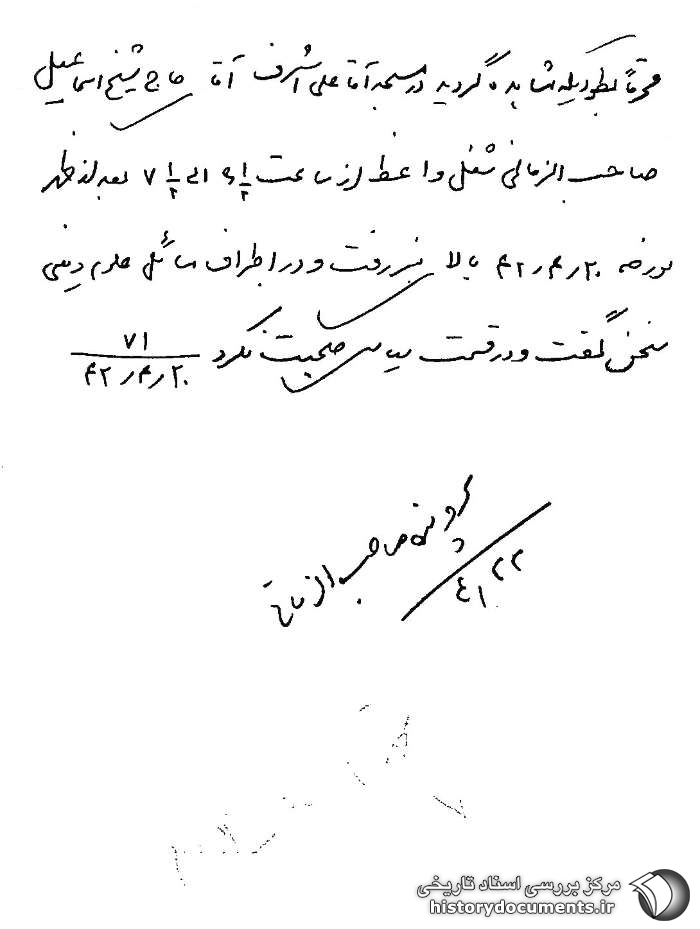 محترماً بطوریکه مشاهده گردید در مسجد آقا علی اشرف آقا حاج شیخ اسماعیل
صاحب الزمانی شغل واعظ از ساعت ۶ ۱/۲ الی ۷ ۱/۲ بعد از ظهر
مورخه ۴۲٫۴٫۲۰ بالا منبر رفت و در اطراف مسائل علوم دینی
سخن گفت و در قسمت سیاسی صحبت نکرد ۷۱
۴۲٫۴٫۲۰
صاحب الزمانی
۴٫۲۲
مرکز بررسی اسناد تاریخی
historydocuments.ir